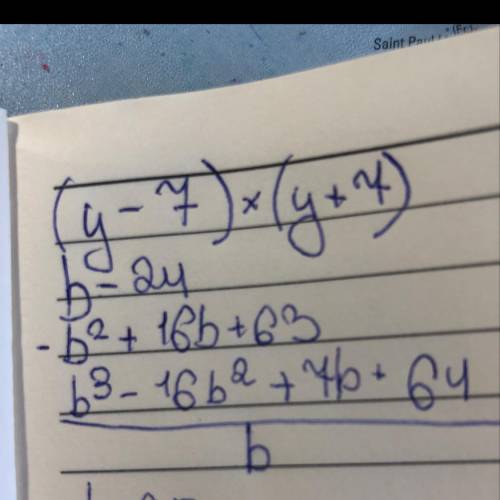 Saint Paul
(y - 7) × (y + 7)
b - 24
- b² + 16b + 63
b³ - 16b² + 7b + 64
b